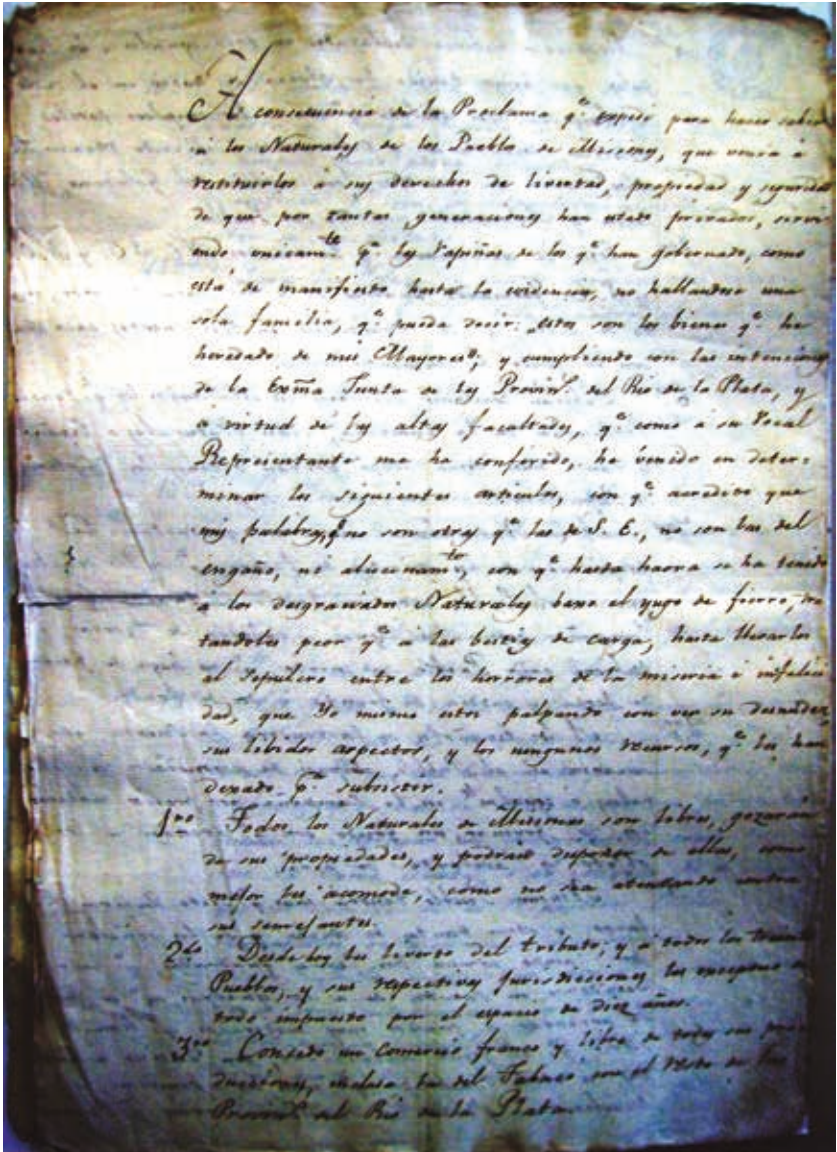 A consecuencia de la Proclama q.e expedí para hacer saber
á los Naturales de los Pueblos de Misiones, que venia á
restituirlos á sus derechos de livertad, propiedad y seguridad
de que por tantas generaciones han estado privados, sirvi
endo unicam.te p.a las rapiñas de los q.e han gobernado, como
está de manifiesto hasta la evidencia, no hallandose una
sola familia, q.e pueda decir: estos son los bienes q.e he
heredado de mis Mayores; y cumpliendo con las intenciones
de la Exma Junta de las Provin.s del Rio de la Plata, y
á virtud de las altas facultades, q.e como á su Vocal
Representante me ha conferido, he venido en deter-
minar los siguientes articulos, con q.e acredito que
mis palabras, no son otras q.e las de S. E., no son las del
engaño, ni alucinam.to, con q.e hasta haora se ha tenido
á los desgraciados Naturales baxo el yugo de fierro, tra
tandolos peor q.e á las bestias de carga, hasta llevarlos
al sepulcro entre los horrores de la miseria é infelici
dad, que Yo mismo estoi palpando con ver su desnudez,
sus libidos aspectos, y los ningunos recursos, q.e les han
dexado p.a subsistir.
1ro Todos los Naturales de Misiones son libres, gozarán
de sus propiedades, y podrán disponer de ellas, como
mejor les acomode, como no sea atentando contra
sus semejantes.
2do Desde hoy les liverto del tributo; y á todos los treinta
Pueblos, y sus respectivas jurisdicciones los exceptuo de
todo impuesto por el espacio de diez años.
3ro Concedo un comercio franco y libre de todas sus pro
ducciones, inclusa la del Tabaco con el resto de las
Provin.s del Rio de la Plata.